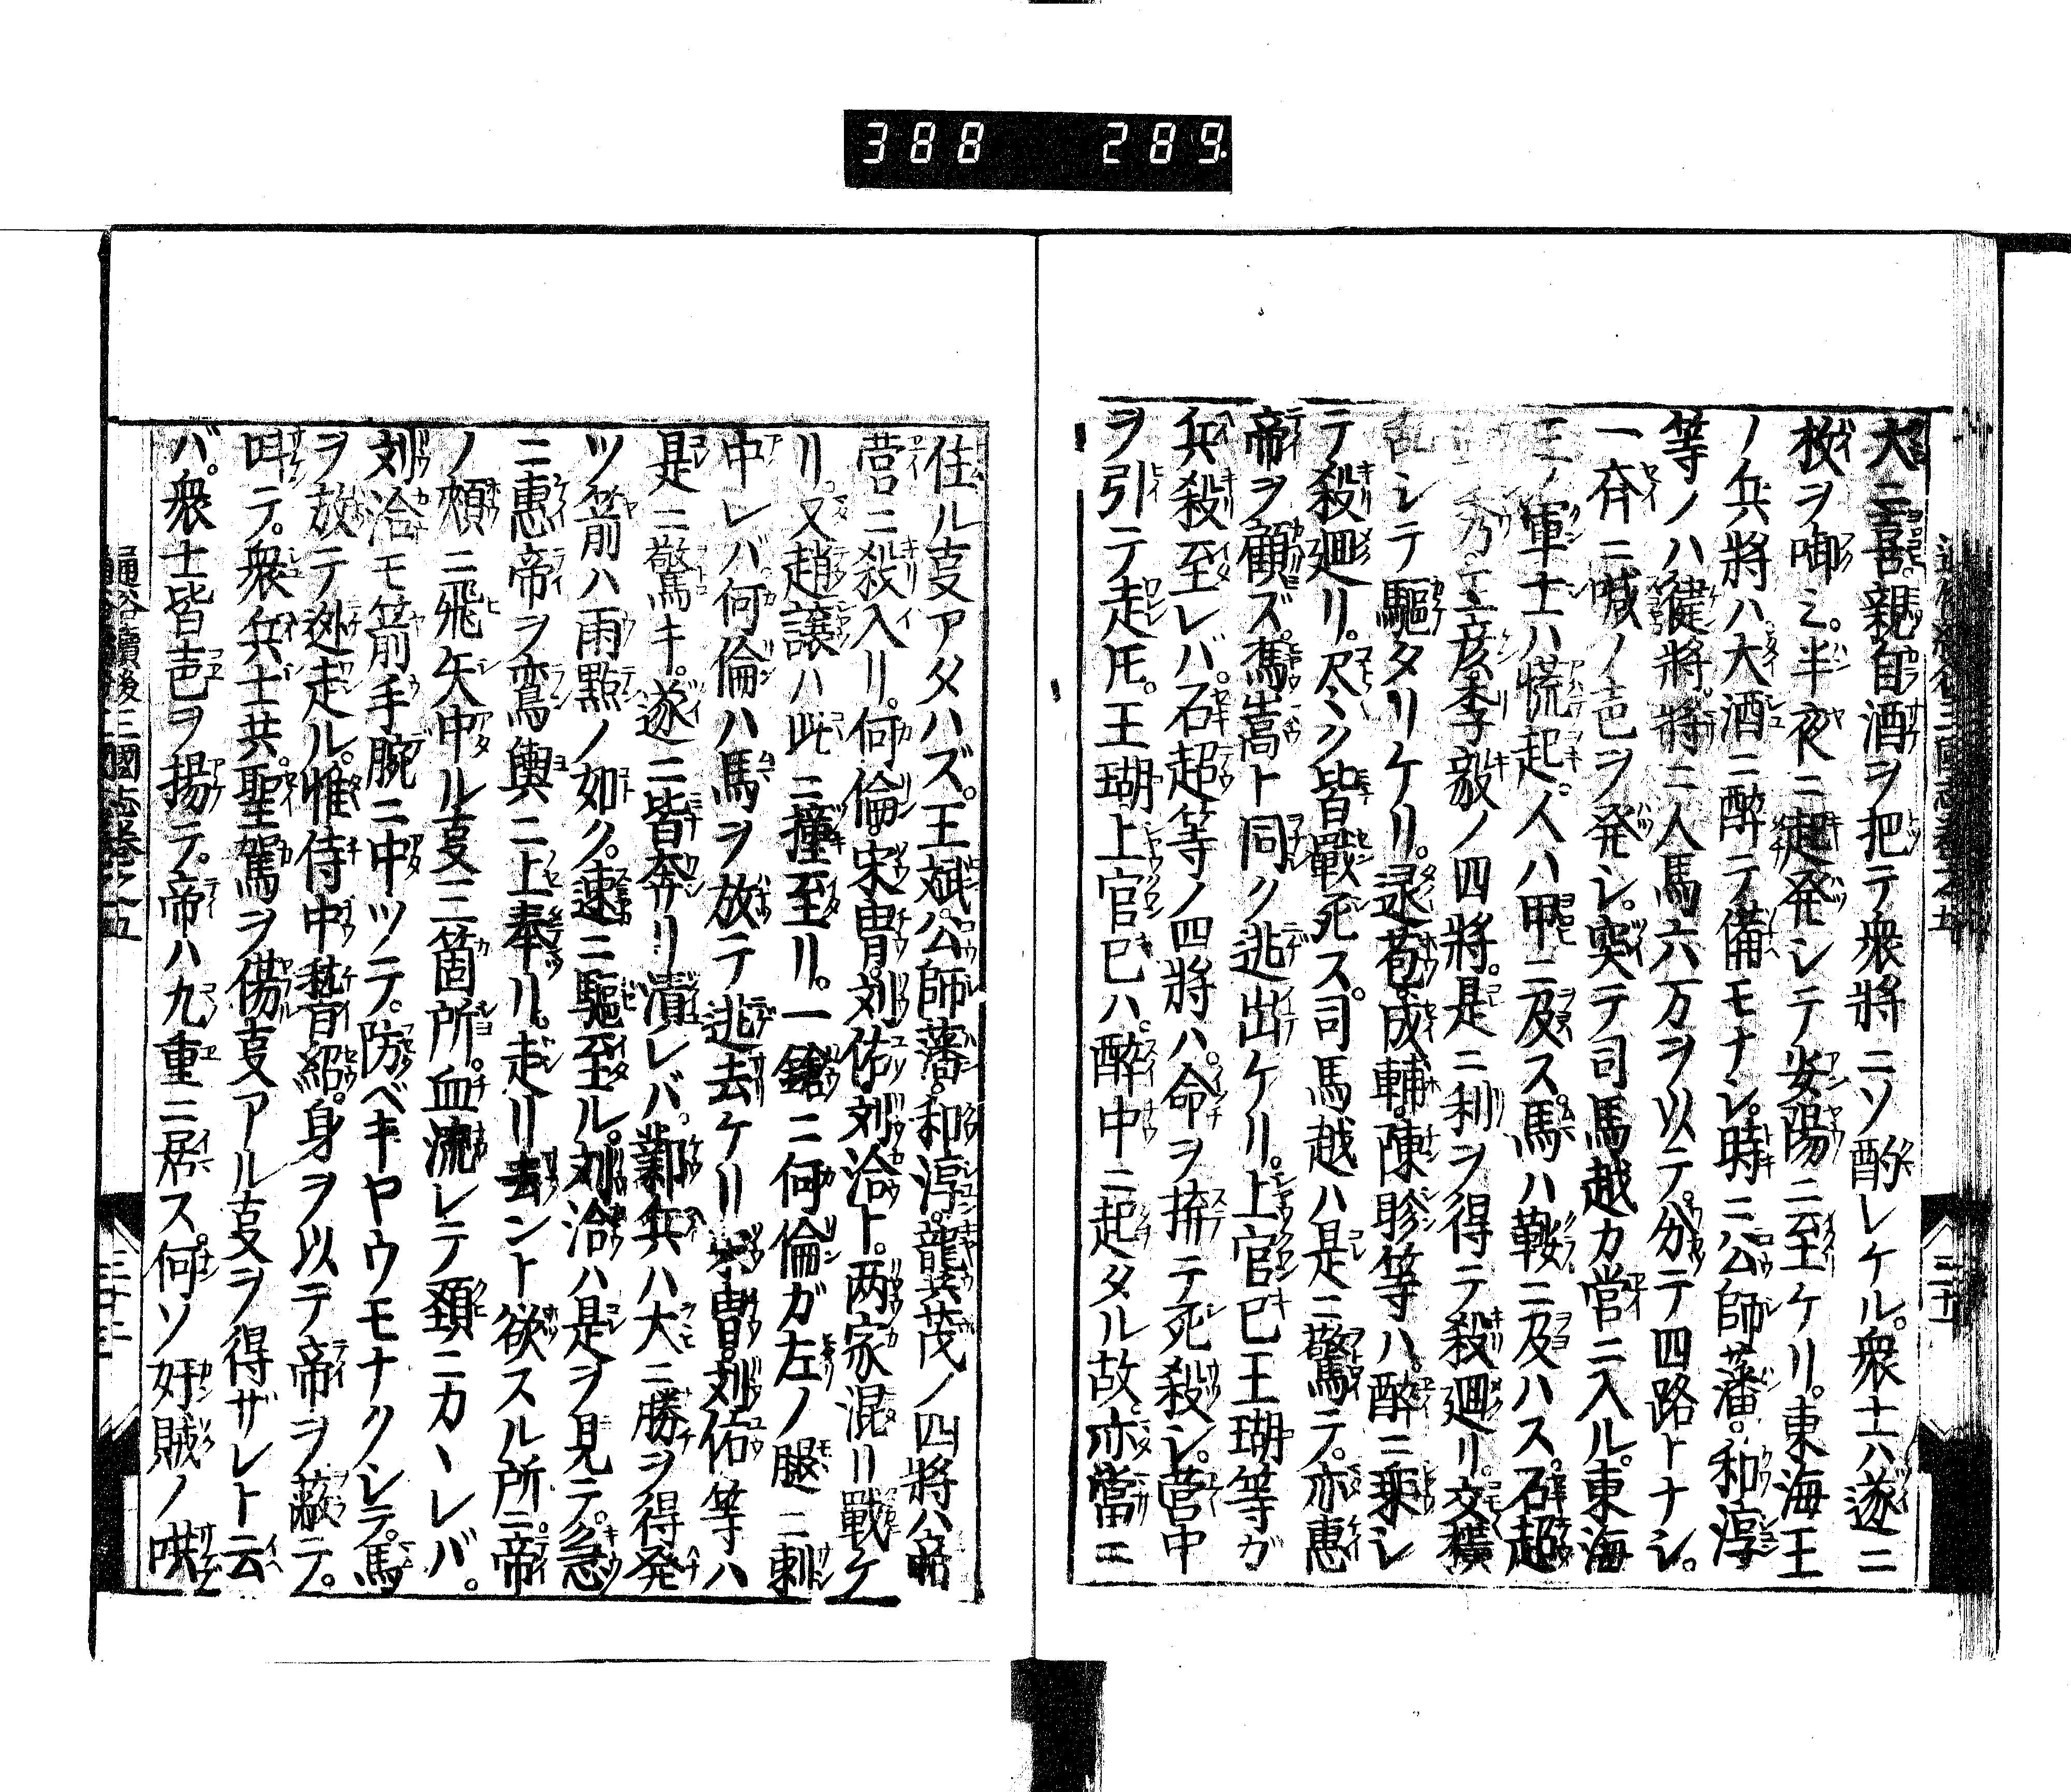 388 289
大ニ喜。親自酒ヲ把テ衆將ニソ酌レケル。衆士ハ遂ニ
枚ヲ啣ミ。半夜ニ起発シテ安陽ニ至ケリ。東海王
ノ兵將ハ。大酒ニ醉テ備モナシ。時ニ公師藩。和淳
等ノハ健將。將ニ人馬六万ヲ以テ。分テ四路トナシ。
一斉ニ喊ノ声ヲ発シ。突テ司馬越カ営ニ入ル。東海
ノ軍士ハ慌起。人ハ甲ニ及ス馬ハ鞍ニ及ハス。石超
王彦李毅ノ四將。是ニ利ヲ得テ殺廻リ。交横
乱シテ驅タリケリ。逯苞。成輔。陳眕等ハ。醉ニ乗シ
テ殺廻リ。尽ミク皆戰死ス。司馬越ハ是ニ驚テ。亦惠
帝ヲ顧ズ。馮嵩ト同ク逃出ケリ。上官巳王瑚等ガ
兵殺至レバ。石超等ノ四將ハ。命ヲ拚テ死殺シ。菅中
ヲ引テ走𪜈。王瑚上官巳ハ。醉中ニ起タル故。亦當ニ
住ル叓アタハズ。王斌。公師藩。和淳。龔茂ノ四將ハ帝
営ニ殺入リ。何倫。宋胄。刘佑。刘洽ト。两家混リ戰ケ
リ。又趙讓ハ此ニ撞至リ。一鎗ニ何倫ガ左ノ腿ニ刺
中レバ。何倫ハ馬ヲ放テ逃去ケリ。宋胄。刘佑等ハ
是ニ驚キ。遂ニ皆奔リ潰レバ。鄴兵ハ大ニ勝ヲ得発
ツ箭ハ雨點ノ如ク。速ニ驅至ル。刘洽ハ是ヲ見テ。急
ニ惠帝ヲ鸞輿ニ上奉ル。走リ去ント欲スル所ニ。帝
ノ頰ニ飛矢中ル叓三箇所。血流レテ頚ニカヽレバ。
刘洽モ箭手腕ニ中ツテ。防ベキヤウモナクシテ。馬
ヲ放テ迯走ル。惟侍中嵇紹。身ヲ以テ帝ヲ蔽テ。
呌テ。衆兵士共。聖駕ヲ傷叓アル叓ヲ得ザレト云
バ。衆士皆声ヲ揚テ。帝ハ九重ニ居ス。何ソ奸賊ノ哄
通俗續後三國志卷之五
三十二